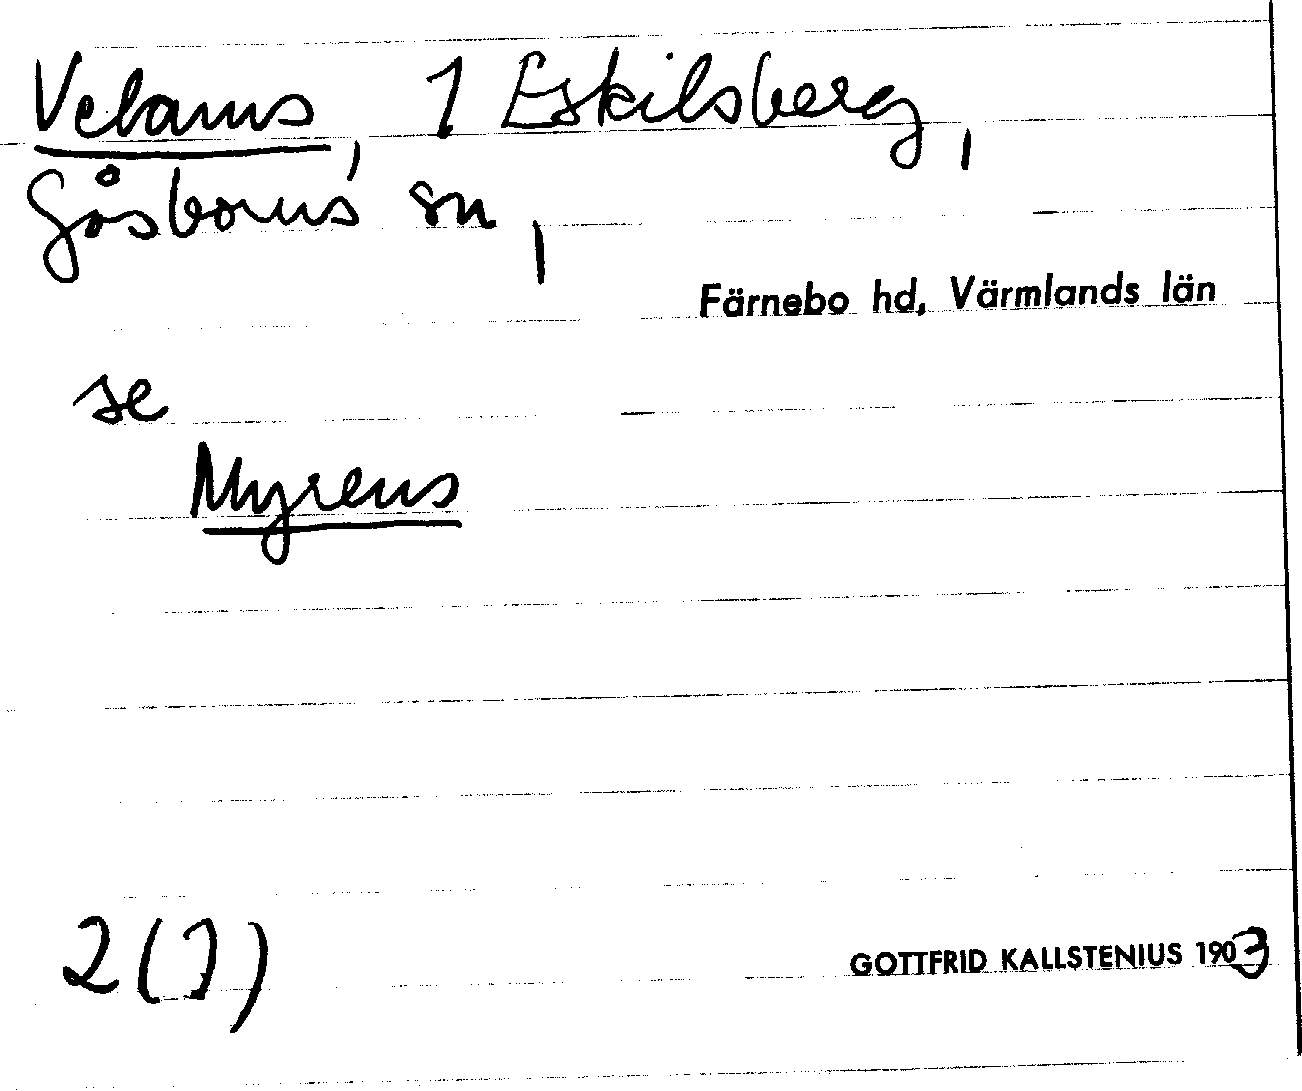 Velams, 1 Eskilsberg,
Gåsborns sn,
Färnebo hd, Värmlands län
se
Myrens
2(1)
GOTTFRID KALLSTENIUS 1903